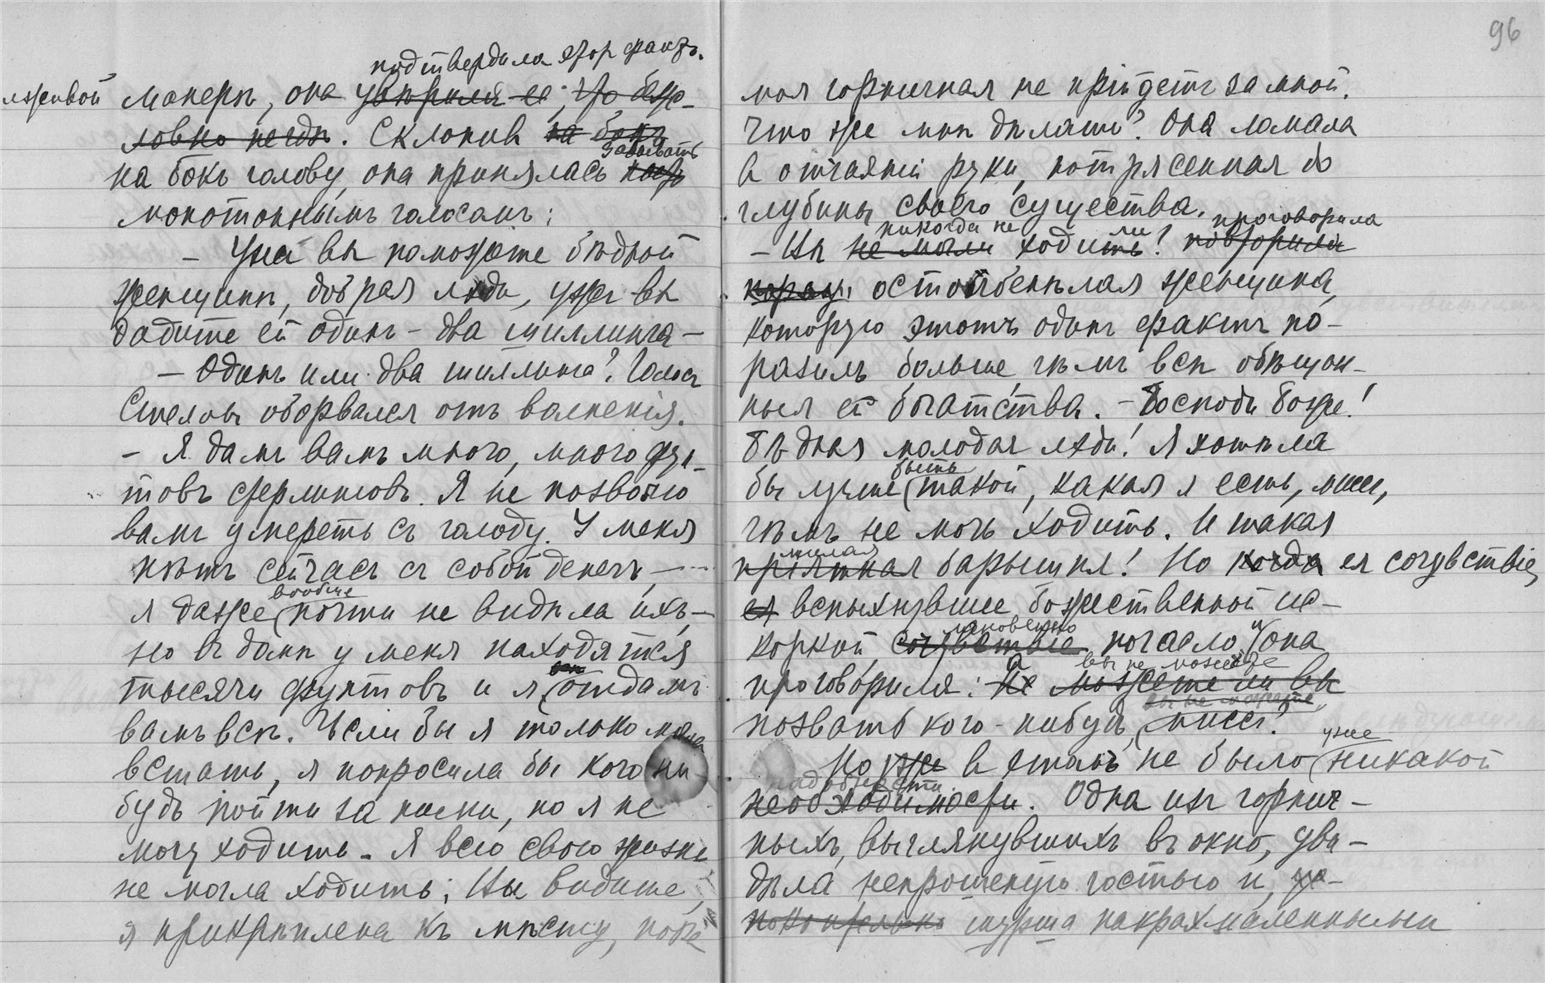 подтвердила этот фактъ.
лживой манерѣ, она увѣрила ее, что безу-
словно
. Склонивъ на бокъ
завывать
на бокъ голову, она принялась
монотоннымъ голосомъ:
— Ужъ вы поможете бѣдной
женщинѣ, добрая лэди, ужъ вы
дадите ей одинъ – два шиллинга —
— Одинъ или два шиллинга? Голосъ
Стеллы оборвался отъ волненія.
— Я дамъ вамъ много, много фун-
товъ стерлинговъ. Я не позволю
вамъ умереть съ голоду. У меня
нѣтъ сейчасъ съ собой денегъ, —
вообще
я даже почти не видѣла ихъ, —
но въ домѣ у меня находятся
тысячи фунтовъ и я отдамъ
вамъ всѣ. Если бы я только могла
встать, я попросила бы кого ни
будь пойти за ними, но я не
могу ходить. Я всю свою жизнь
не могла ходить. Вы видите,
я прикрѣплена къ мѣсту, пока
96
моя горничная не прійдетъ за мной.
Что же мнѣ дѣлать? Она ломала
въ отчаяніи руки, потрясенная до
глубины своего существа.
никогда не ли проговорила
— Вы не могли ходить? повторила
остолбенѣлая женщина,
которую этотъ одинъ фактъ по-
разилъ больше чѣмъ всѣ обѣщан-
ныя ей богатства. — Господи Боже!
Бѣдная молодая лэди! Я хотѣла
быть
бы лучше такой, какая я есть, мисс,
чѣмъ не мочь ходить. И такая
милая
пріятная барышня! Но когда ея сочувствіе,
ея вспыхнувшее божественной ис-
мгновенно
коркой сочувствіе погасло и она
а вы не можете
проговорила: Не можете ли вы
вы не можете,
позвать кого-нибудь, миссъ?
уже
Но уже въ этомъ не было никакой
надобности
необходимости. Одна изъ горнич-
ныхъ, выглянувшихъ въ окно, уви-
дѣла непрошенную гостью и,
шурша накрахмаленными